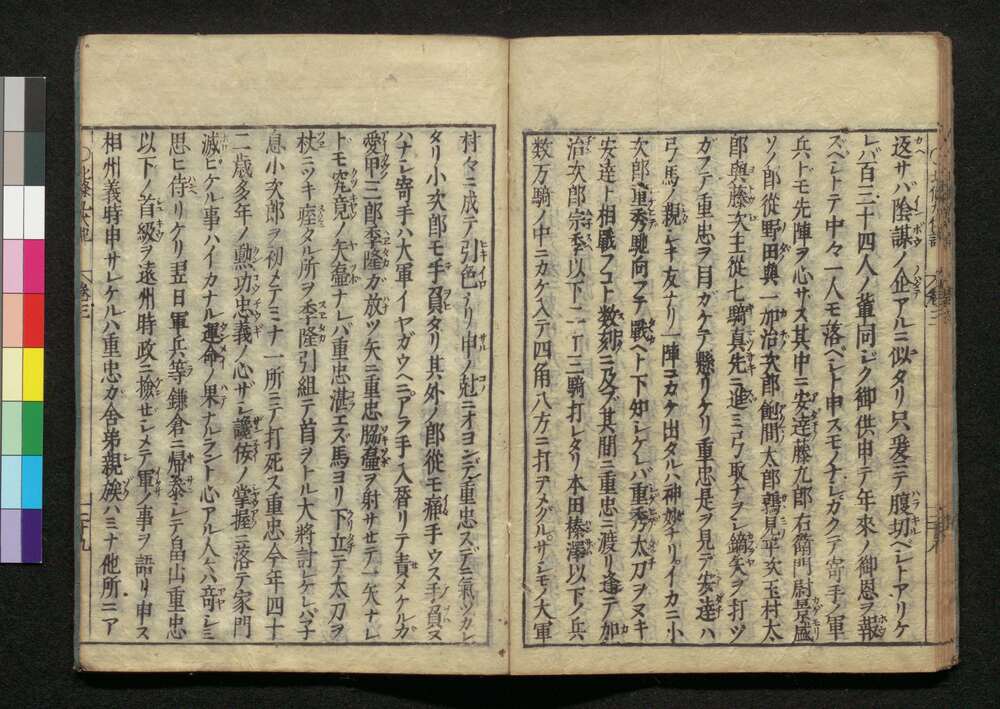 返サバ陰謀ノ企アルニ似タリ只爰ニテ腹切ベシトアリケ
レバ百三十四人ノ輩同ジク御供申テ年來ノ御恩ヲ報
ズベシトテ中々一人モ落ベシト申スモノナシカクテ寄手ノ軍
兵トモ先陣ヲ心サス其中ニ安達藤九郎右衛門尉景盛
ソノ郎從野田與一加治次郎飽間太郎鶴見平次玉村太
郎與藤次主從七騎真先ニ進ミ弓取ナヲシ鏑矢ヲ打ツ
ガフテ重忠ヲ目ガケテ懸リケリ重忠是ヲ見テ安達ハ
弓馬ノ親シキ友ナリ一陣ニカケ出タルハ神妙ナリイカニ小
次郎重秀馳向フテ戰ヘト下知シケレバ重秀太刀ヲヌキ
安達ト相戰フコト数刻ニ及ブ其間ニ重忠三渡リ逢テ加
治次郎宗季以下二十三騎打レタリ本田榛澤以下ノ兵
数万騎ノ中ニカケ入テ四角八方ニ打ヲメグルサレモノ大軍
村々ニ成テ引色ナリ申ノ尅ニオヨンデ重忠スデニ氣ツカレ
タリ小次郎モ手負タリ其外ノ郎從モ痛手ウス手負ヌ
ハナシ寄手ハ大軍イヤガウヘニアラ手入替リテ責メケルガ
愛甲三郎季隆ガ放ツ矢ニ重忠脇壷ヲ射サセテ一矢ナレ
トモ究竟ノ矢壷ナレバ重忠湛エズ馬ヨリ下立テ太刀ヲ
杖ニツキ痓タル所ヲ季隆引組テ首ヲトル大將討レケレバ子
息小次郎ヲ初メテミナ一所ニテ打死ス重忠今年四十
二歳多年ノ勲功忠義ノ心ザシ讒佞ノ掌握ニ落テ家門
滅ヒケル事ハイカナル運命ノ果ナルラント心アル人ハ奇シミ
思ヒ侍リケリ翌日軍兵等鎌倉ニ帰參シテ畠山重忠
以下ノ首級ヲ遠州時政ニ撿セシメテ軍ノ事ヲ語リ申ス
相州義時申サレケルハ重忠ガ舎弟親族ハミナ他所ニア